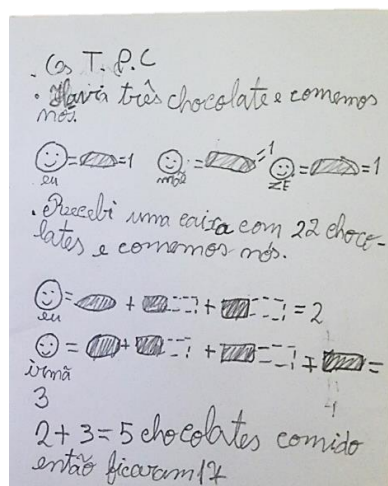 . Os T. P. C
. Havia três chocolate e comemos
nós.
= = 1 = 1 = = 1
eu mãe ZE
. Recebi uma caixa com 22 choco-
lates e comemos nós.
= + + = 2
eu
= + + + =
irmã
3
2 + 3 = 5 chocolates comido
então ficaram 17